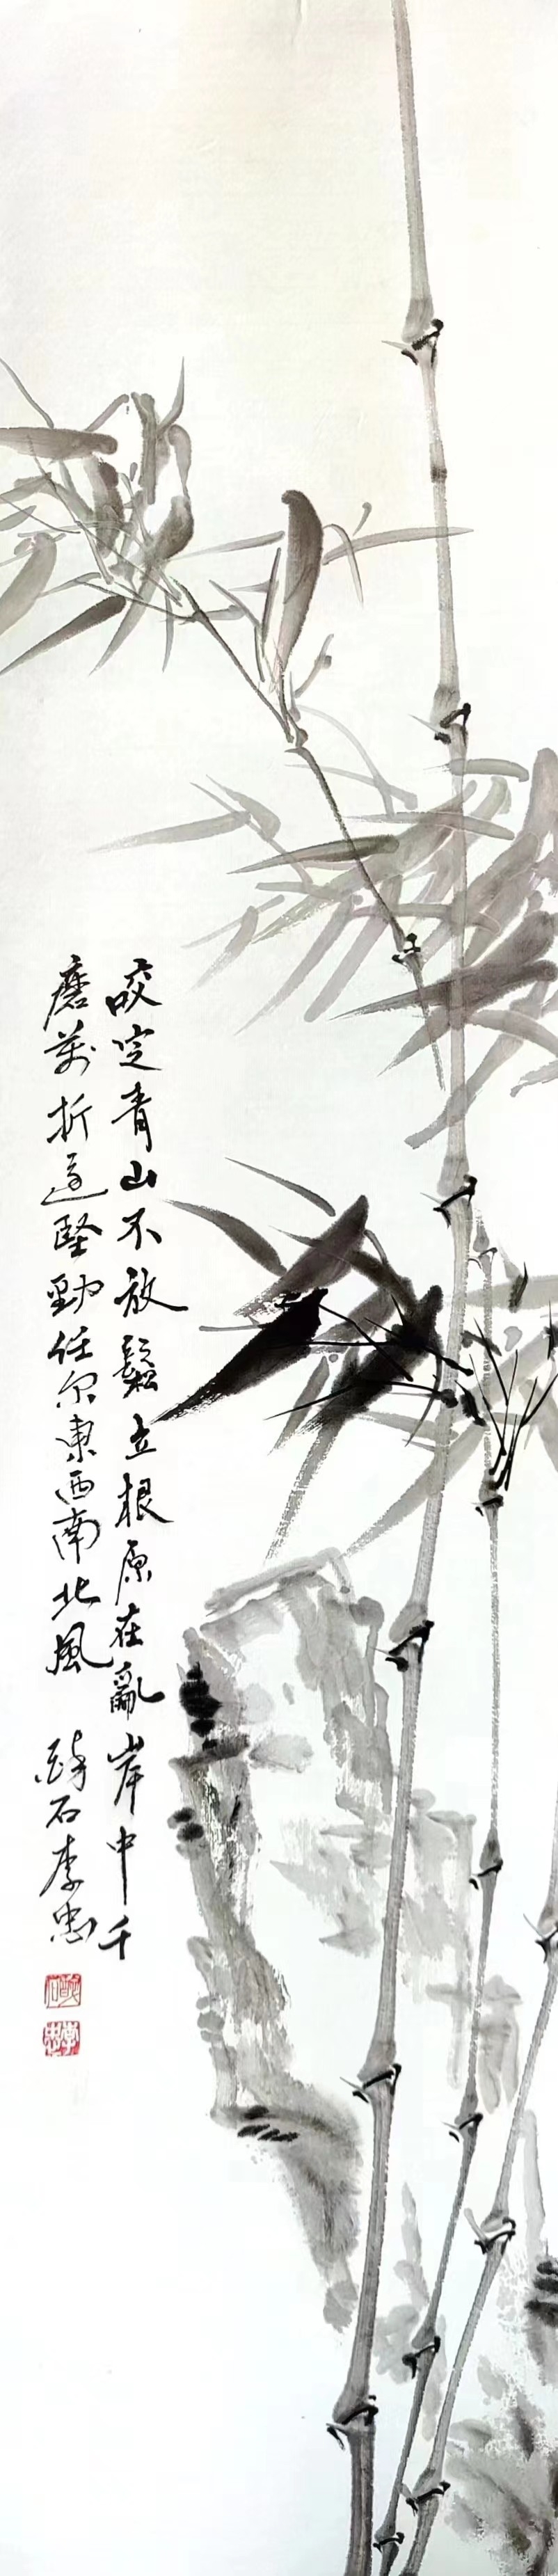 咬定青山不放鬆立根原在亂岸中千
磨萬折還堅勁任尔東西南北風
石李忠
李忠